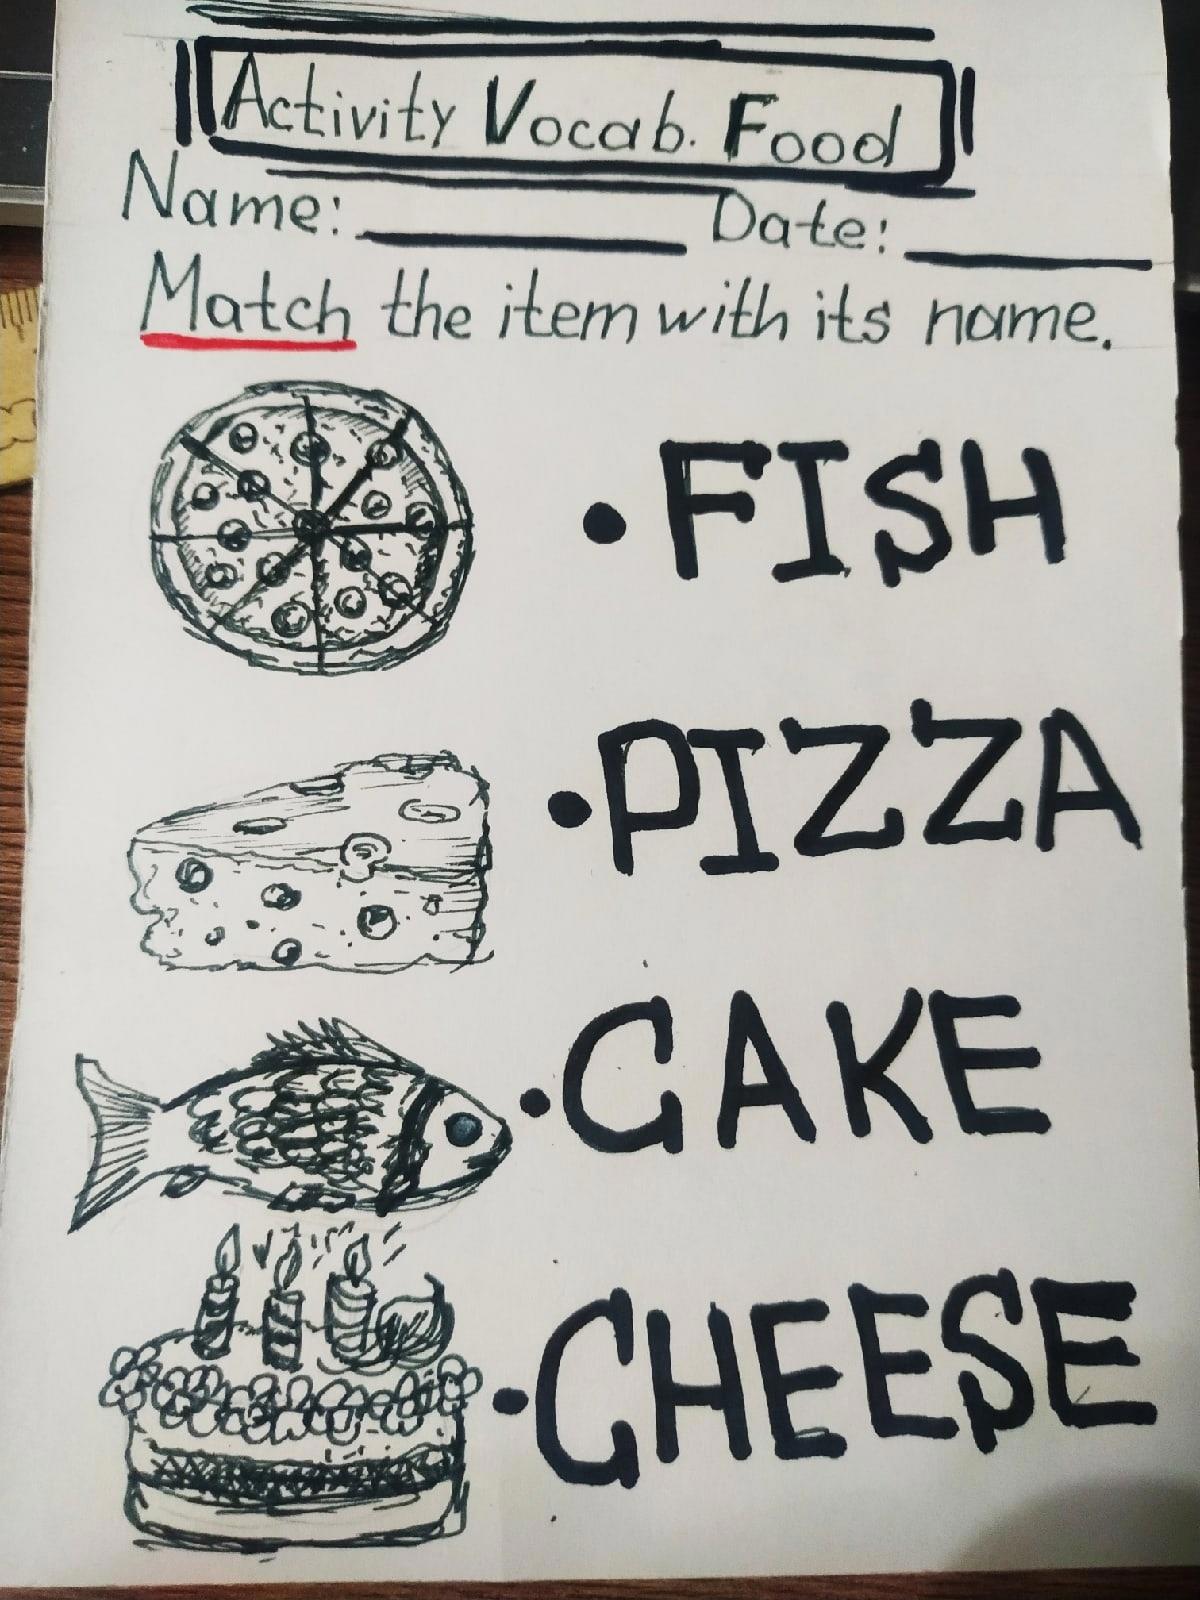 Activity Vocab. Food
Name: Date:
Match the item with its name.
• FISH
• PIZZA
• CAKE
• CHEESE